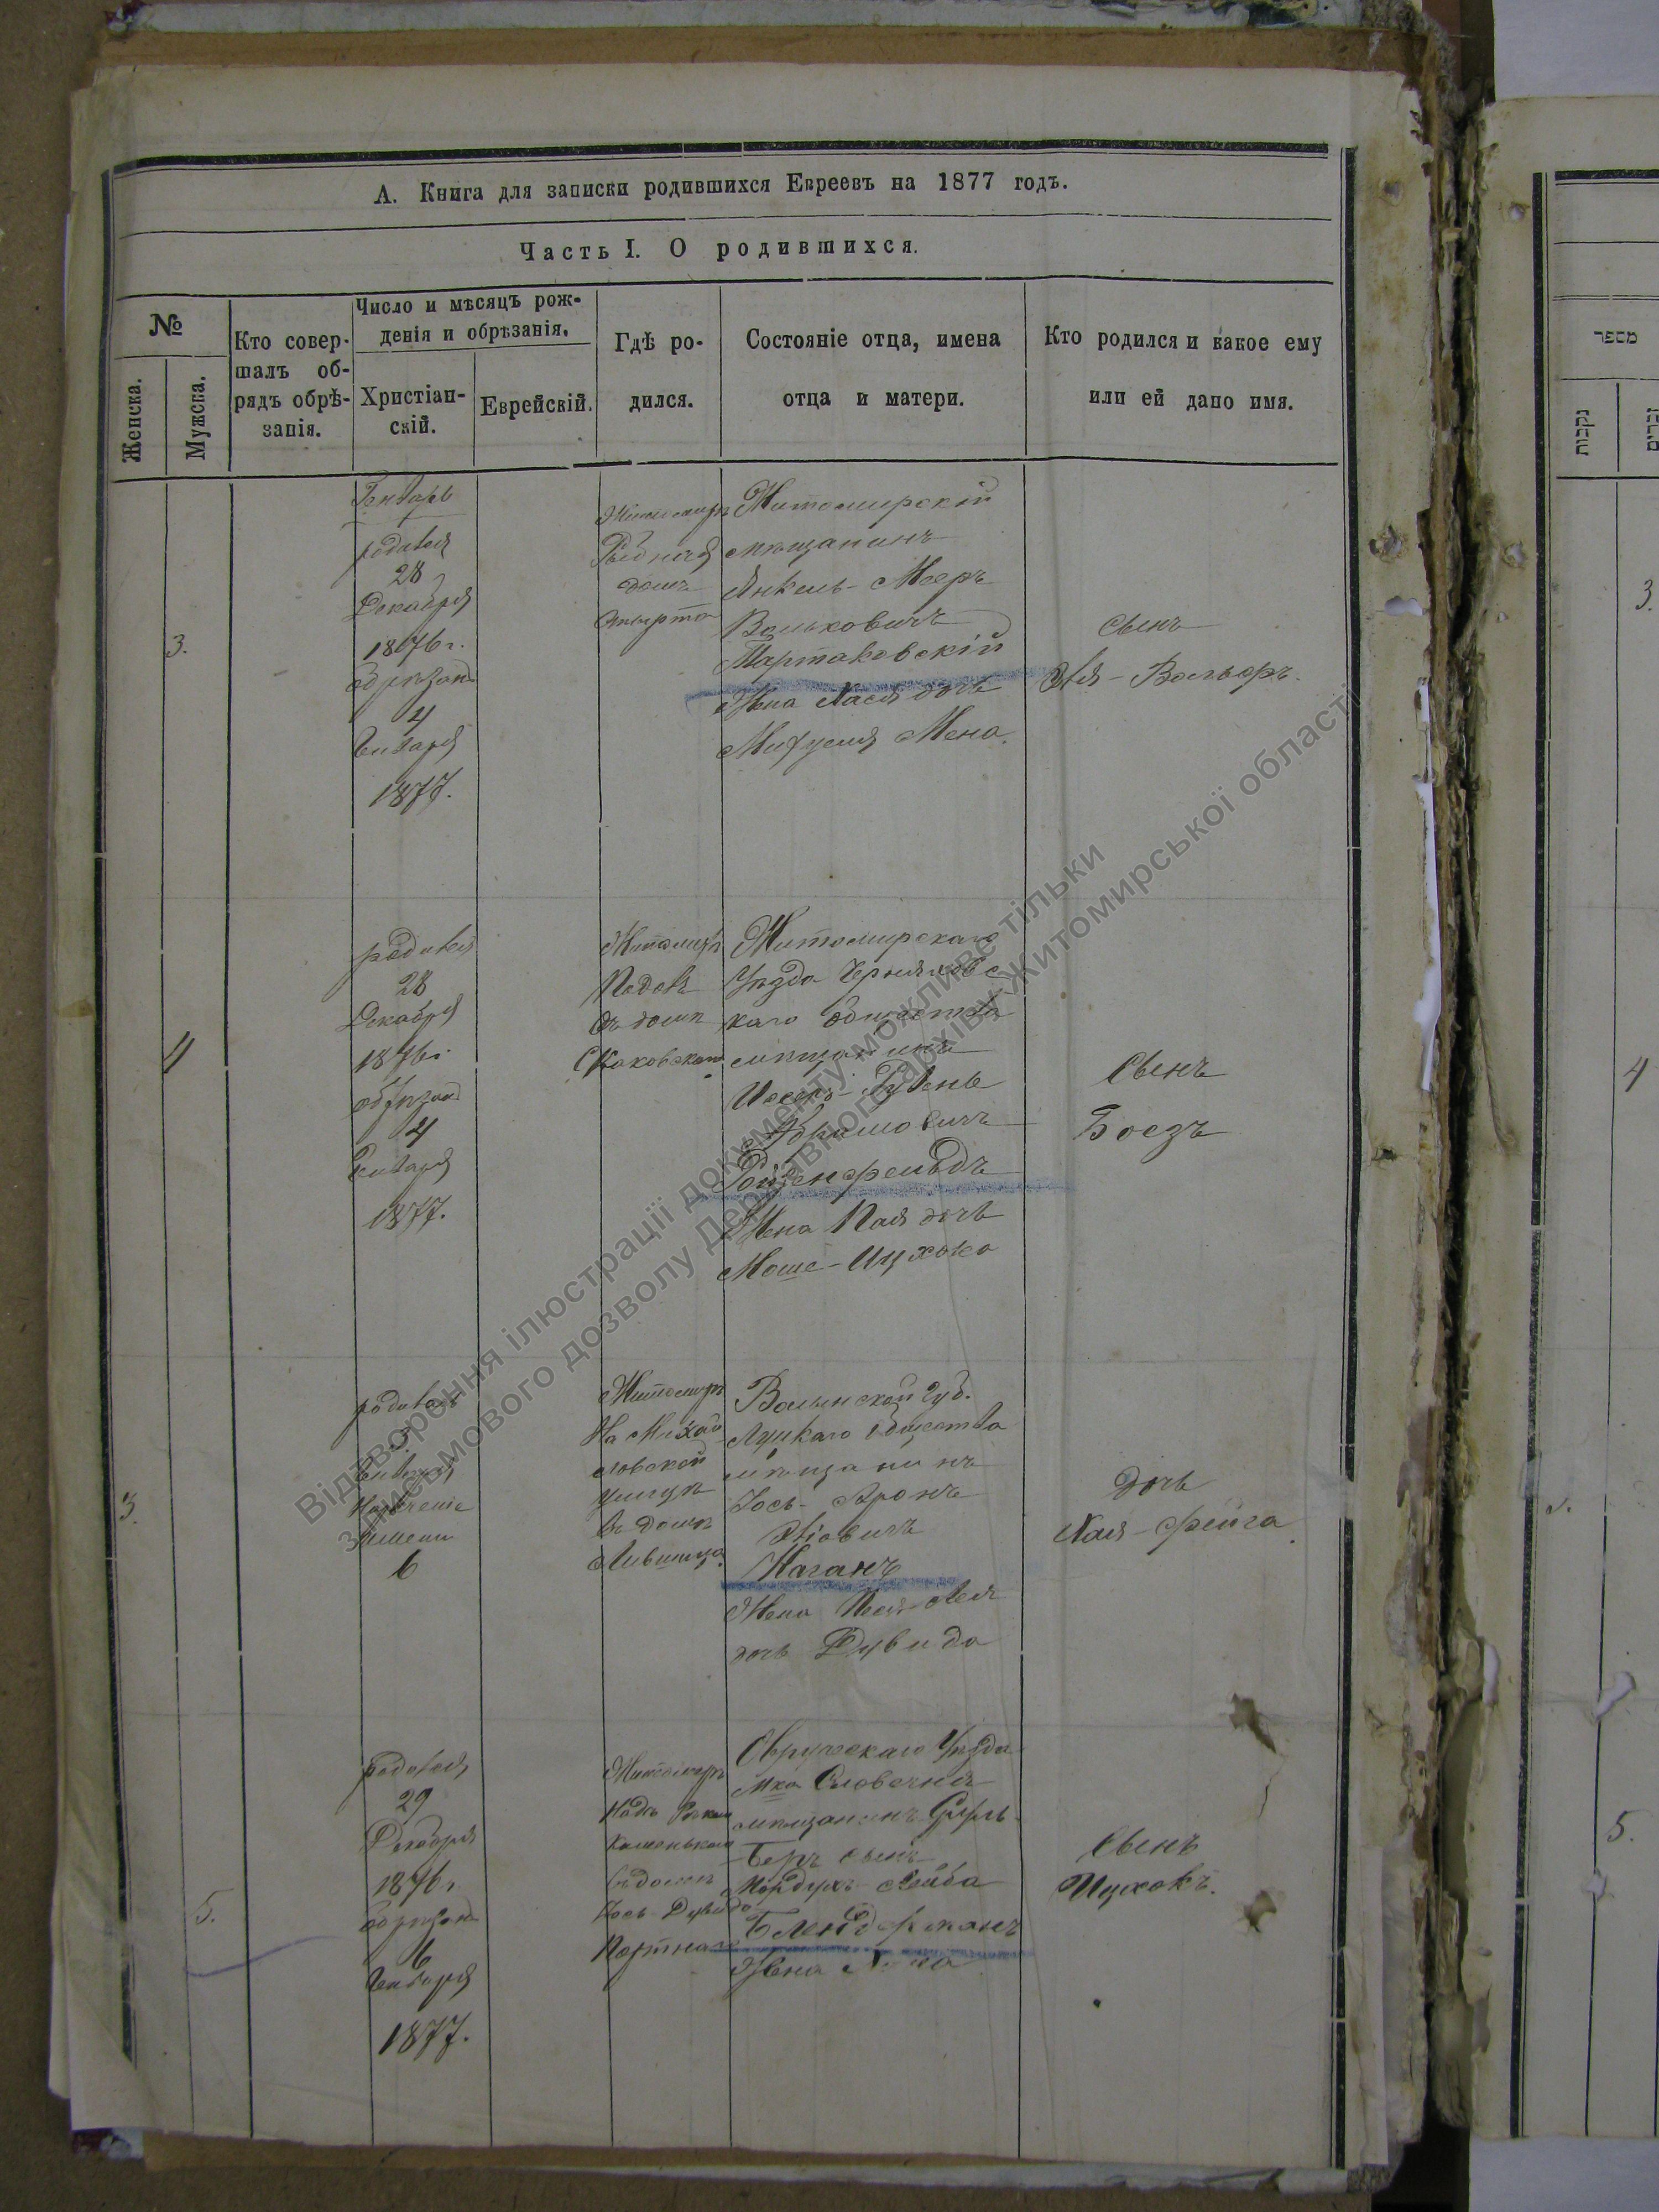 А. Книга для записки родившихся Евреевъ на 1877 годъ.
Часть I. О родившихся.
№
Женска.
Мужска.
Кто совер-
шалъ об-
рядъ обрѣ-
занія.
Число и мѣсяцъ рож-
денія и обрѣзанія.
Христіан-
скій.
Еврейскій.
Гдѣ ро-
дился.
Состояніе отца, имена
отца и матери.
Кто родился и какое ему
или ей дано имя.
3.
Генварь
родився
28
Декабря
1876 г.
обрѣзанъ
4
Генваря
1877.
Житомиръ
домъ
Житомирскій
мѣщанинъ
Янкель-Мееръ
Вольковичъ
Мартаковскій
Жена Хася дочь
Мена.
Сынъ
4
родився
28
Декабря
1876 г.
обрѣзанъ
4
Генваря
1877.
Житомиръ
въ домѣ
Житомирскаго
Уѣзда Черняховс
каго общества
мѣщанинъ
Абрамовичъ
Ройзенфельдъ
Жена дочь
Моше-Ицхока
Сынъ
Боезъ
3.
родилась
3.
Генваря
Наречение
имени
6
Житомиръ
На Михай
ловской
улицѣ
въ домѣ
Лившица.
Волынской губ.
Луцкаго общества
мѣщанинъ
Іось-Аронъ
Каганъ
Жена
дочь Дувида
дочь
Хая-Фейга.
5.
родився
29
Декабря
1876 г.
обрѣзанъ
6
Генваря
1877.
Житомиръ
Надъ
въ домѣ
Іось-Дувидо
Портнаго
Овручскаго Уѣзда
мка Словечня
мѣщанинъ
Беръ сынъ
Мордухъ-Лейба
Блендерманъ
Жена
Сынъ
Ицхокъ.
מספר
נקבות
זכרים
3.
4
5.
Відтворення ілюстрації документу можливе тільки
з письмового дозволу Державного архіву Житомирської області